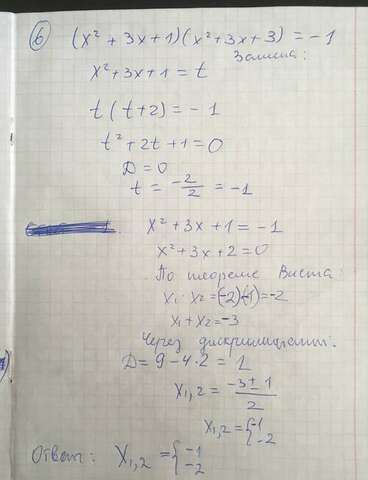 6 (x² + 3x + 1)(x² + 3x + 3) = -1
Замена:
x² + 3x + 1 = t
t(t + 2) = -1
t² + 2t + 1 = 0
D = 0
t = -2/2 = -1
x² + 3x + 1 = -1
x² + 3x + 2 = 0
По теореме Виета:
x₁ · x₂ = (-2)(-1) = -2
x₁ + x₂ = -3
Через дискриминант.
D = 9 - 4 · 2 = 1
x₁,₂ = (-3 ± 1)/2
x₁,₂ = { -1
-2
Ответ: x₁,₂ = { -1
-2